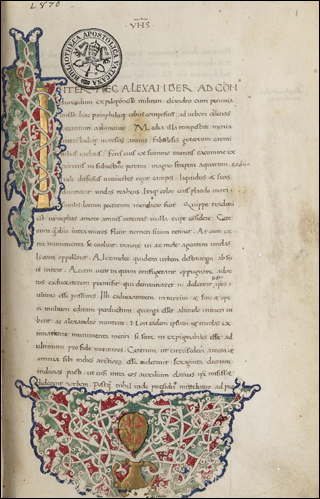 L 870
YHS
1
BIBLIOTECA APOSTOLICA VATICANA
INTER HEC ALEXANDER AD CON
ducendum ex peloponesse militem cleandro cum pecunia
misso: lycie pamphilieque rebus compositis, ad urbem celenas
exercitum admouit. Media illa tempestate moenia
interfluebat marsias amnis fabulosis grecorum carmi
nibus inclitus. Fons eius ex summo montis cacumine ex
currens in subiectam petram magno strepitu aquarum cadit
inde diffusus circumiectos rigat campos liquidus et suas
dumtaxat undas trahens. Itaque color eius placido mari
similis locum poetarum mendacio fecit. Quippe traditum
est nymphas amore amnis retentas in illa rupe considere. Cete
rum quam diu intra muros fluit nomen suum retinet. At cum ex
tra munimenta se euoluit maiore ui ac mole agentem undas
lycum appellant. Alexander quidem urbem destitutam ab su
is intrat. Arcem uero in quam confugerant oppugnare ador
tus caduceatorem premisit qui denuntiaret ni dederent ipsos
ultima esse passuros. Illi caduceatorem in turrem et situ et ope
re multum editam perductum quanta esset altitudo intueri iu
bent ac alexandro nuntiare: Non eadem ipsum et incolas ex
timatione munimenta metiri. se scire inexpugnabiles esse ad
ultimum pro fide morituros. Ceterum ut circumsideri arcem et
omnia sibi in dies arctiora esse uiderunt sexaginta dierum
indutias pacti ut nisi intra eos auxilium darius ipse misisset
dederent urbem. Postquam nihil inde presidii mittebatur ad pre